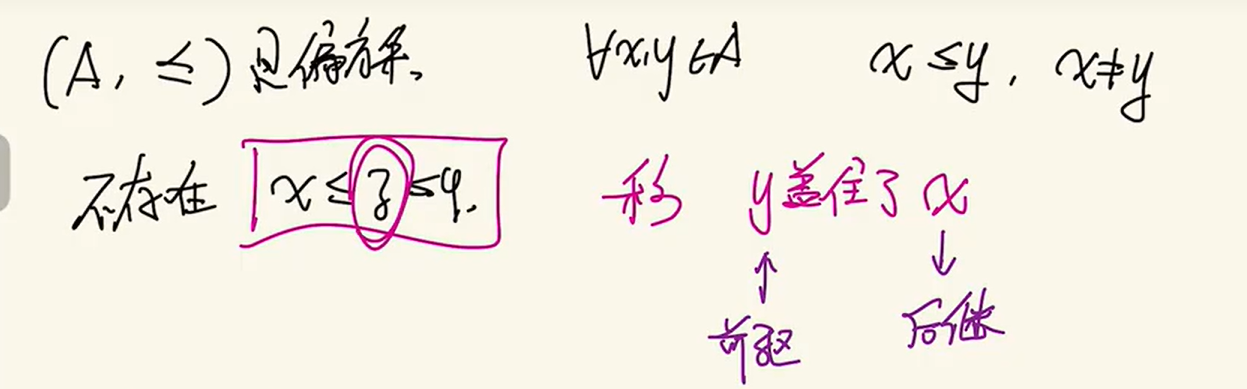 (A, ≤) 是偏序集. ∀x,y∈A x≤y, x≠y
不存在 x≤z≤y. 称 y盖住了x
↑ ↓
前驱 后继